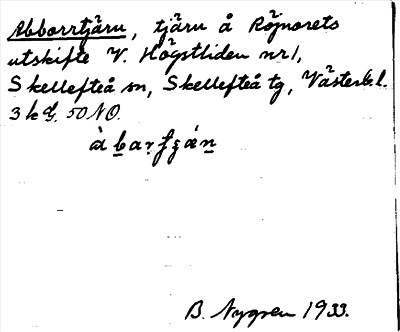 Abborrtjärn, tjärn å Röjnorets
utskifte V. Högstliden nr 1,
Skellefteå sn, Skellefteå tg, Västerb. l.
3 k G. 50 NO.
B. Nygren 1933.